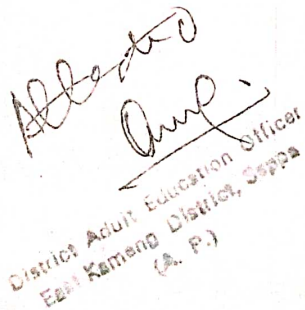 Attested
District Adult Education Officer
East Kameng District, Seppa
(A. P.)